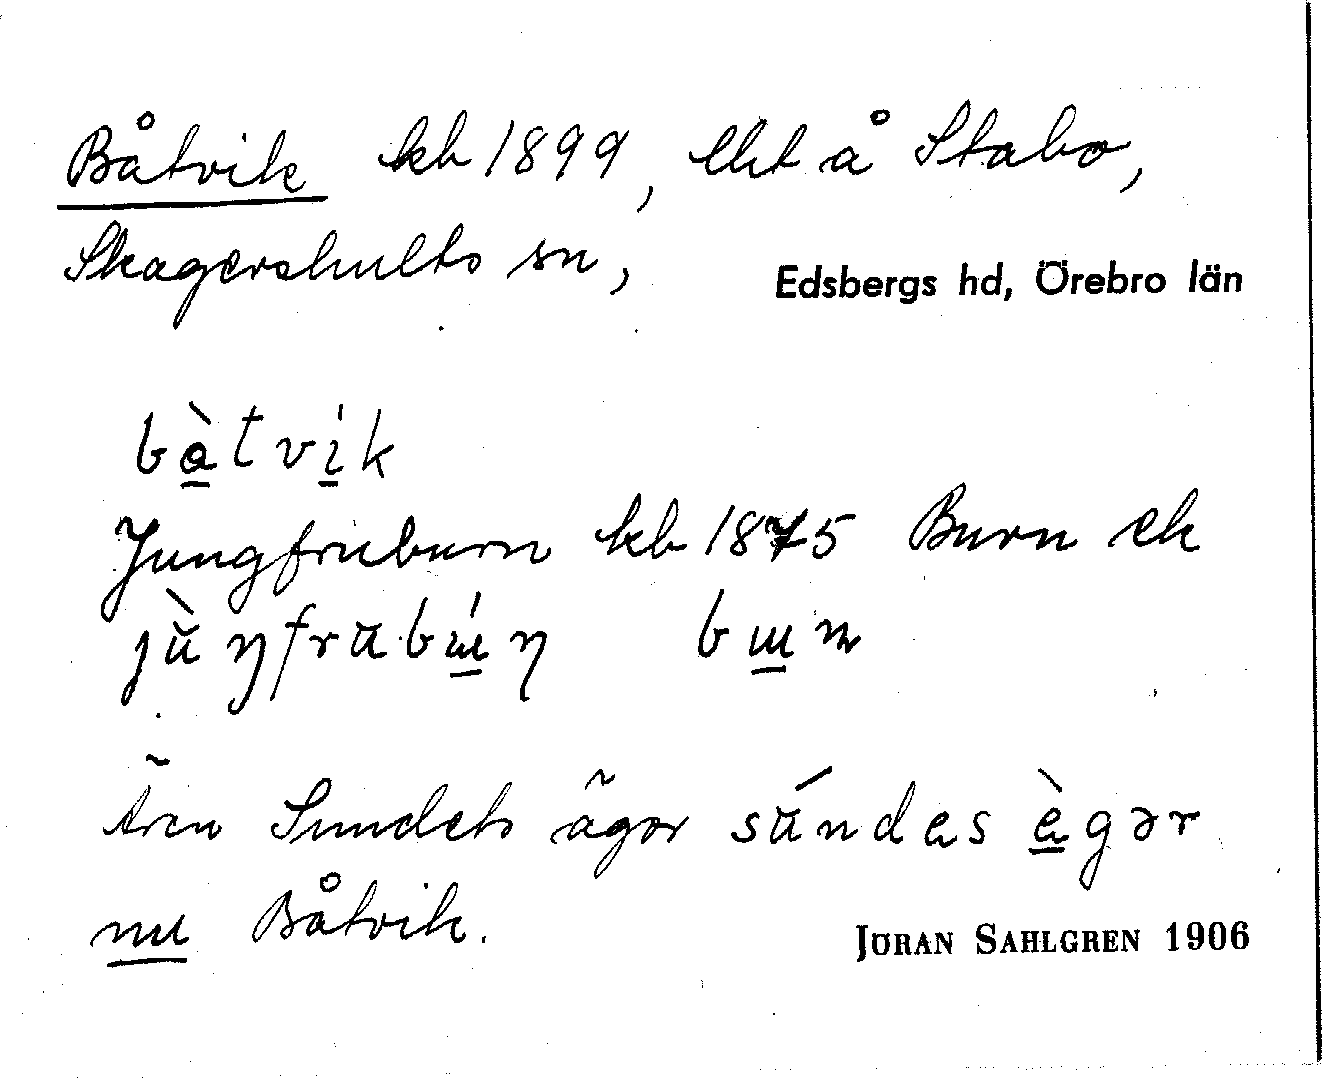 Båtvik kb 1899, lht å Stabo,
Skagershults sn, Edsbergs hd, Örebro län
bàtvík
Jungfruburn kb 1875 Burn ek
jùŋfrubɯ́ɳ bɯɳ
Även Sundets ägor súndas ègər
nu Båtvik. JÖRAN SAHLGREN 1906